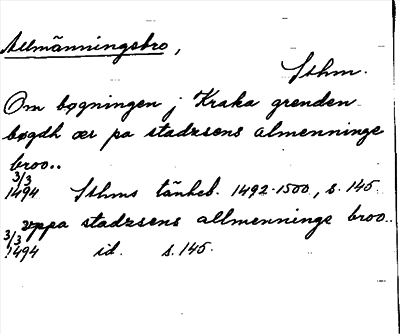 Allmänningsbro,
Sthm.
Om bygningen j Kraka grenden
bygdh ær pa stadzsens almenninge
broo..
3/3
1494 Sthms tänkeb. 1492-1500, s. 145.
vppa stadzsens allmenninge broo..
3/3
1494 id. s. 145.